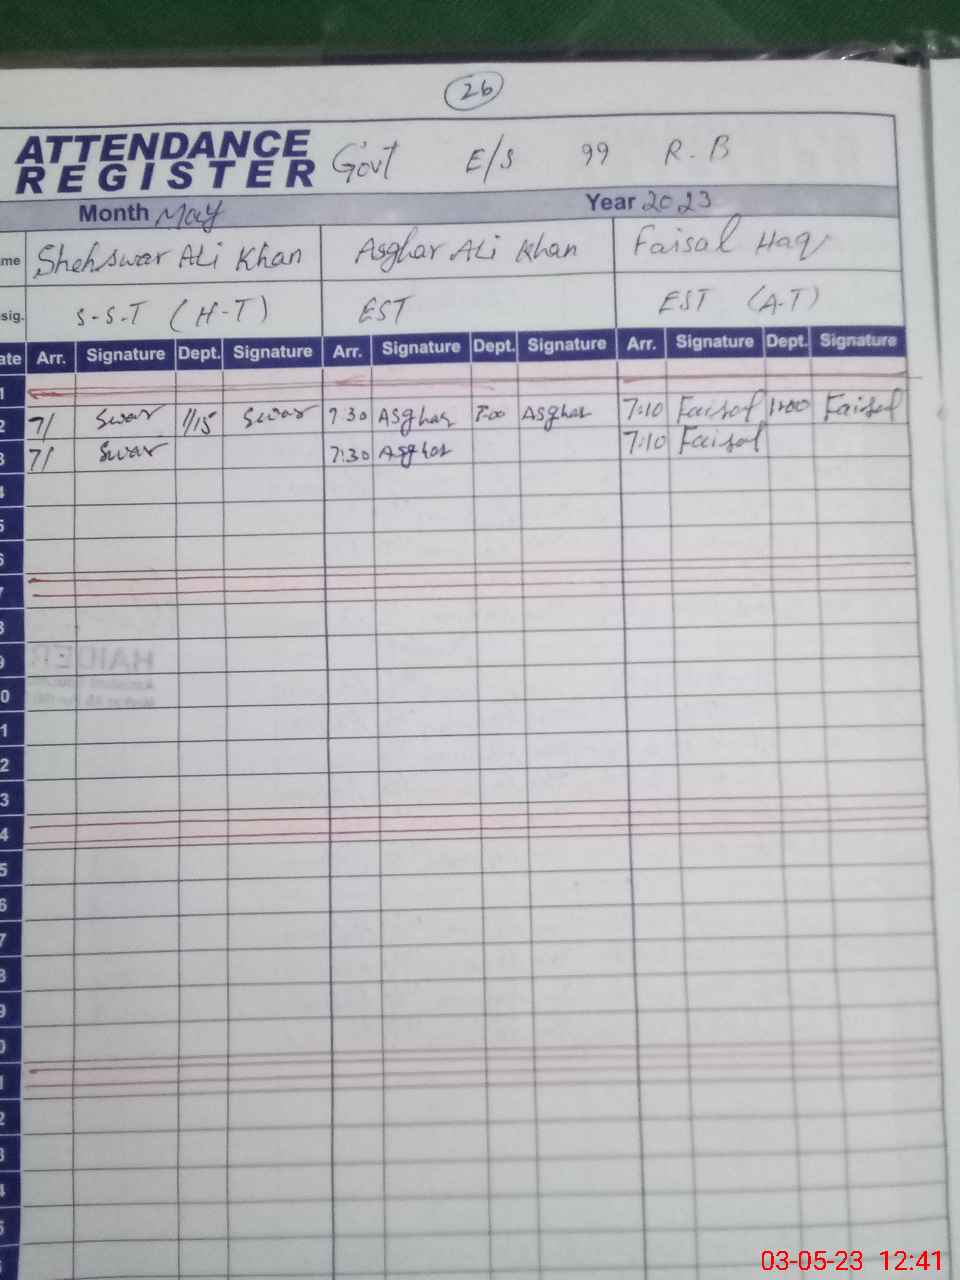 26
ATTENDANCE
REGISTER
Govt E/S 99 R.B
Month May Year 2023
me Shehswar Ali Khan Asghar Ali Khan Faisal Haq
sig. S-S-T (H-T) EST EST (A-T)
ate Arr. Signature Dept. Signature Arr. Signature Dept. Signature Arr. Signature Dept. Signature
1
2 7/ Swar 1/15 Swar 7:30 Asghar Asghar 7:10 Faisal 1:00 Faisal
3 7/ Swar 7:30 Asghar 7:10 Faisal
4
5
6
7
8
9
0
1
2
3
4
5
6
7
8
9
0
1
2
3
4
5
HAIDER
03-05-23 12:41